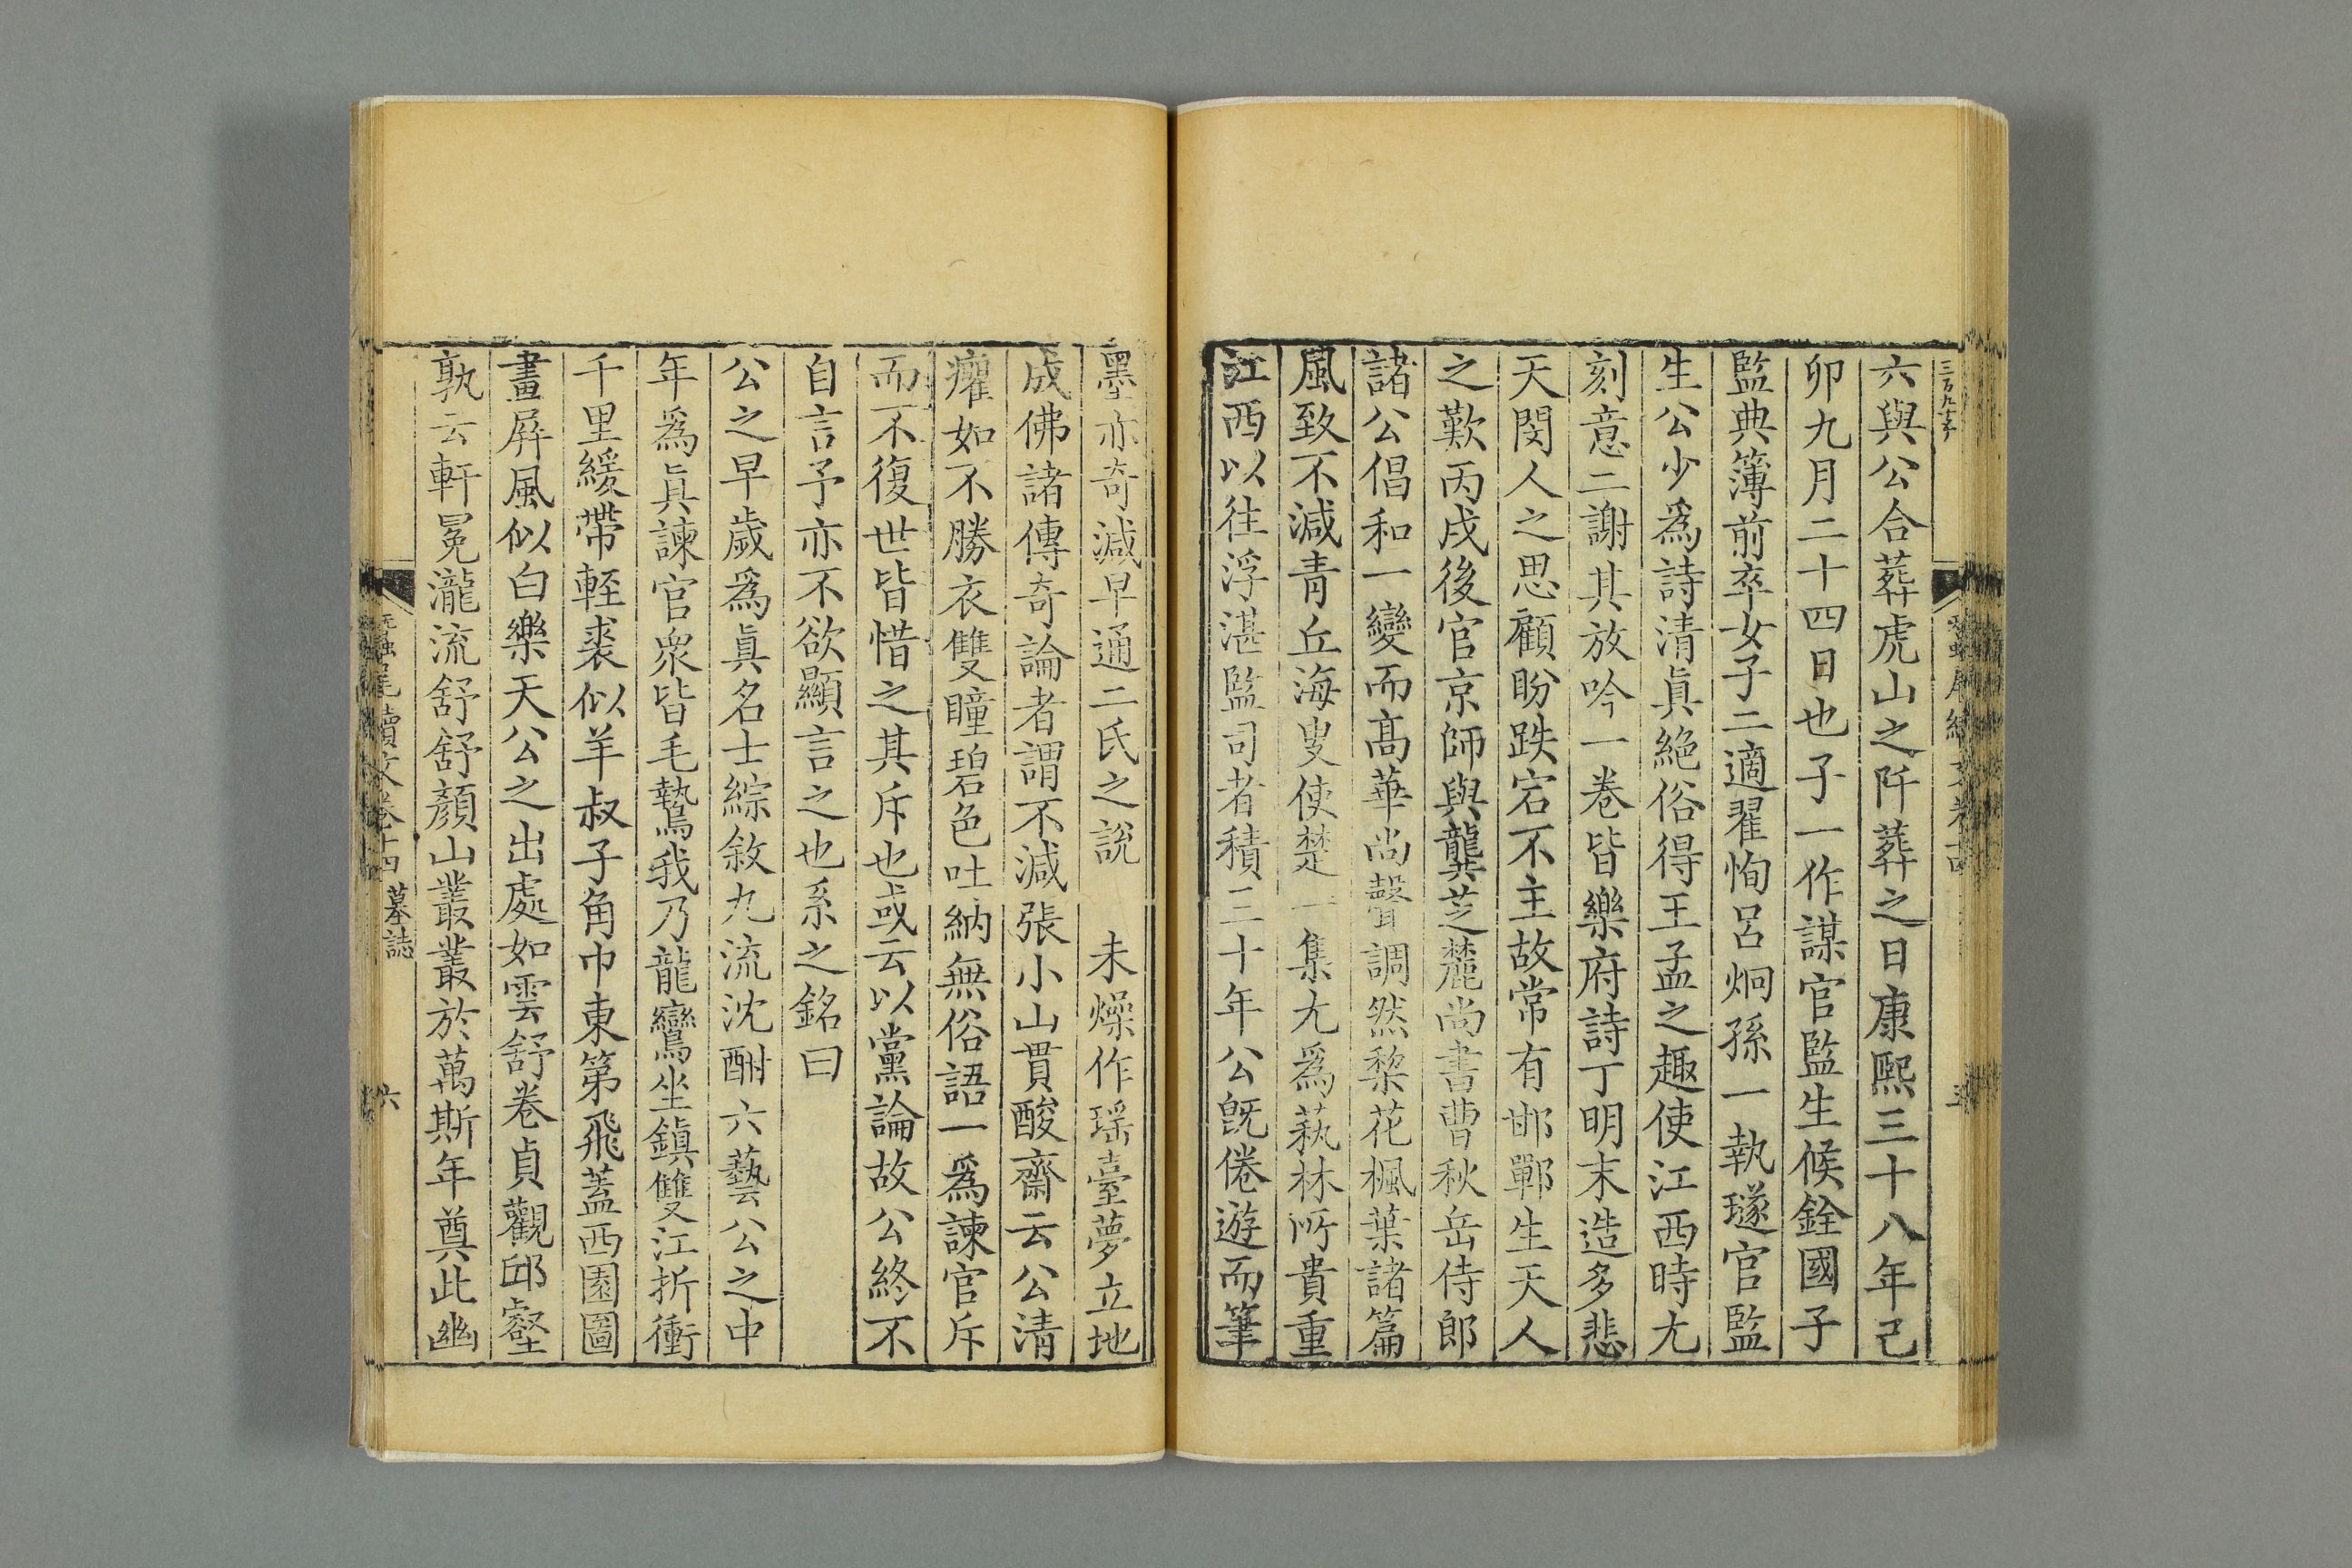 六與公合葬虎山之阡葬之日康熙三十八年己
卯九月二十四日也子一作謀官監生候銓國子
監典簿前卒女子二適翟恂呂炯孫一執璲官監
生公少爲詩清眞絕俗得王孟之趣使江西時尤
刻意二謝其放吟一卷皆樂府詩丁明末造多悲
天閔人之思顧盼跌宕不主故常有邯鄲生天人
之歎丙戌後官京師與龔芝麓尚書曹秋岳侍郎
諸公倡和一變而高華尚聲調然棃花楓葉諸篇
風致不減青丘海叟使楚一集尤爲蓺林所貴重
江西以往浮湛監司者積三十年公旣倦遊而筆
墨亦奇減早通二氏之說 未燥作瑶臺夢立地
成佛諸傳奇論者謂不減張小山貫酸齋云公清
癯如不勝衣雙瞳碧色吐納無俗語一爲諫官斥
而不復世皆惜之其斥也或云以黨論故公終不
自言予亦不欲顯言之也系之銘曰
公之早歲爲眞名士綜敘九流沈酣六藝公之中
年爲眞諫官衆皆毛鷙我乃龍鸞坐鎭雙江折衝
千里緩帶輕裘似羊叔子角巾東第飛蓋西園圖
畫屛風似白樂天公之出處如雲舒卷貞觀邱壑
孰云軒冕瀧流舒舒顏山叢叢於萬斯年奠此幽
蠶尾續文卷十四 墓誌
六